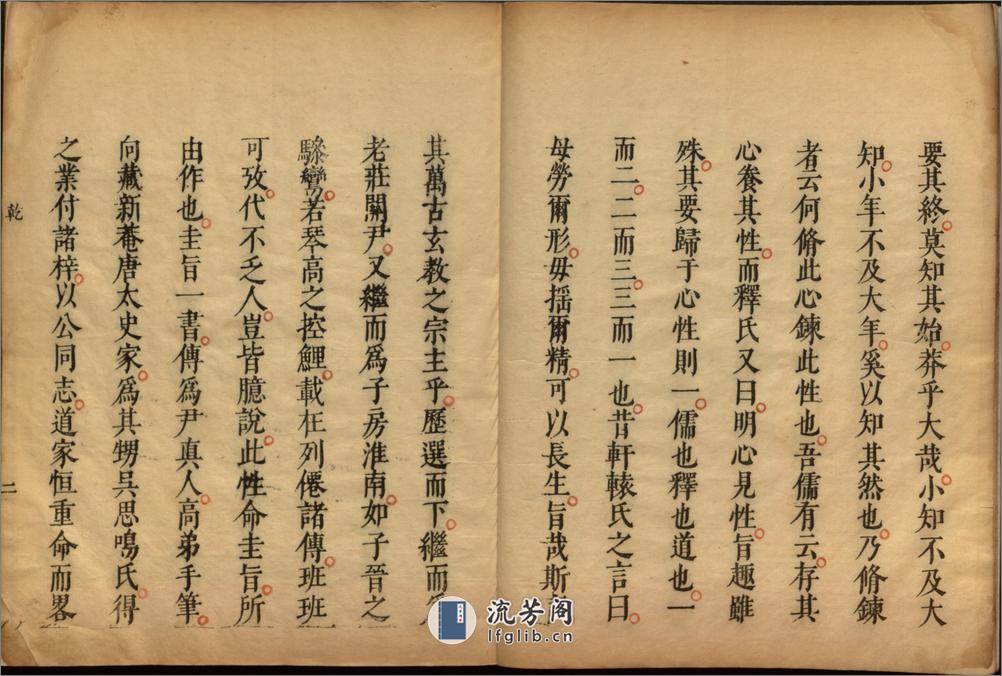 要其終。莫知其始。莽乎大哉。小知不及大
知。小年不及大年。奚以知其然也。乃脩鍊
者云何脩此心鍊此性也。吾儒有云。存其
心養其性。而釋氏又曰。明心見性。旨趣雖
殊。其要歸于心性則一。儒也釋也道也。一
而二。二而三。三而一也。昔軒轅氏之言曰。
毋勞爾形。毋揺爾精。可以長生。旨哉斯
其萬古玄教之宗主乎。歷選而下。繼而
老莊關尹。又繼而爲子房淮南。如子晉之
驂鸞。若琴高之控鯉。載在列僊諸傳。班班
可攷。代不乏人。豈皆臆說。此性命圭旨所
由作也。圭旨一書。傳爲尹真人。高弟手筆。
向藏新菴唐太史家。爲其甥吳思鳴氏。得
之業付諸梓。以公同志。道家恒重命而畧
乾
二
流芳阁
lfglib.cn